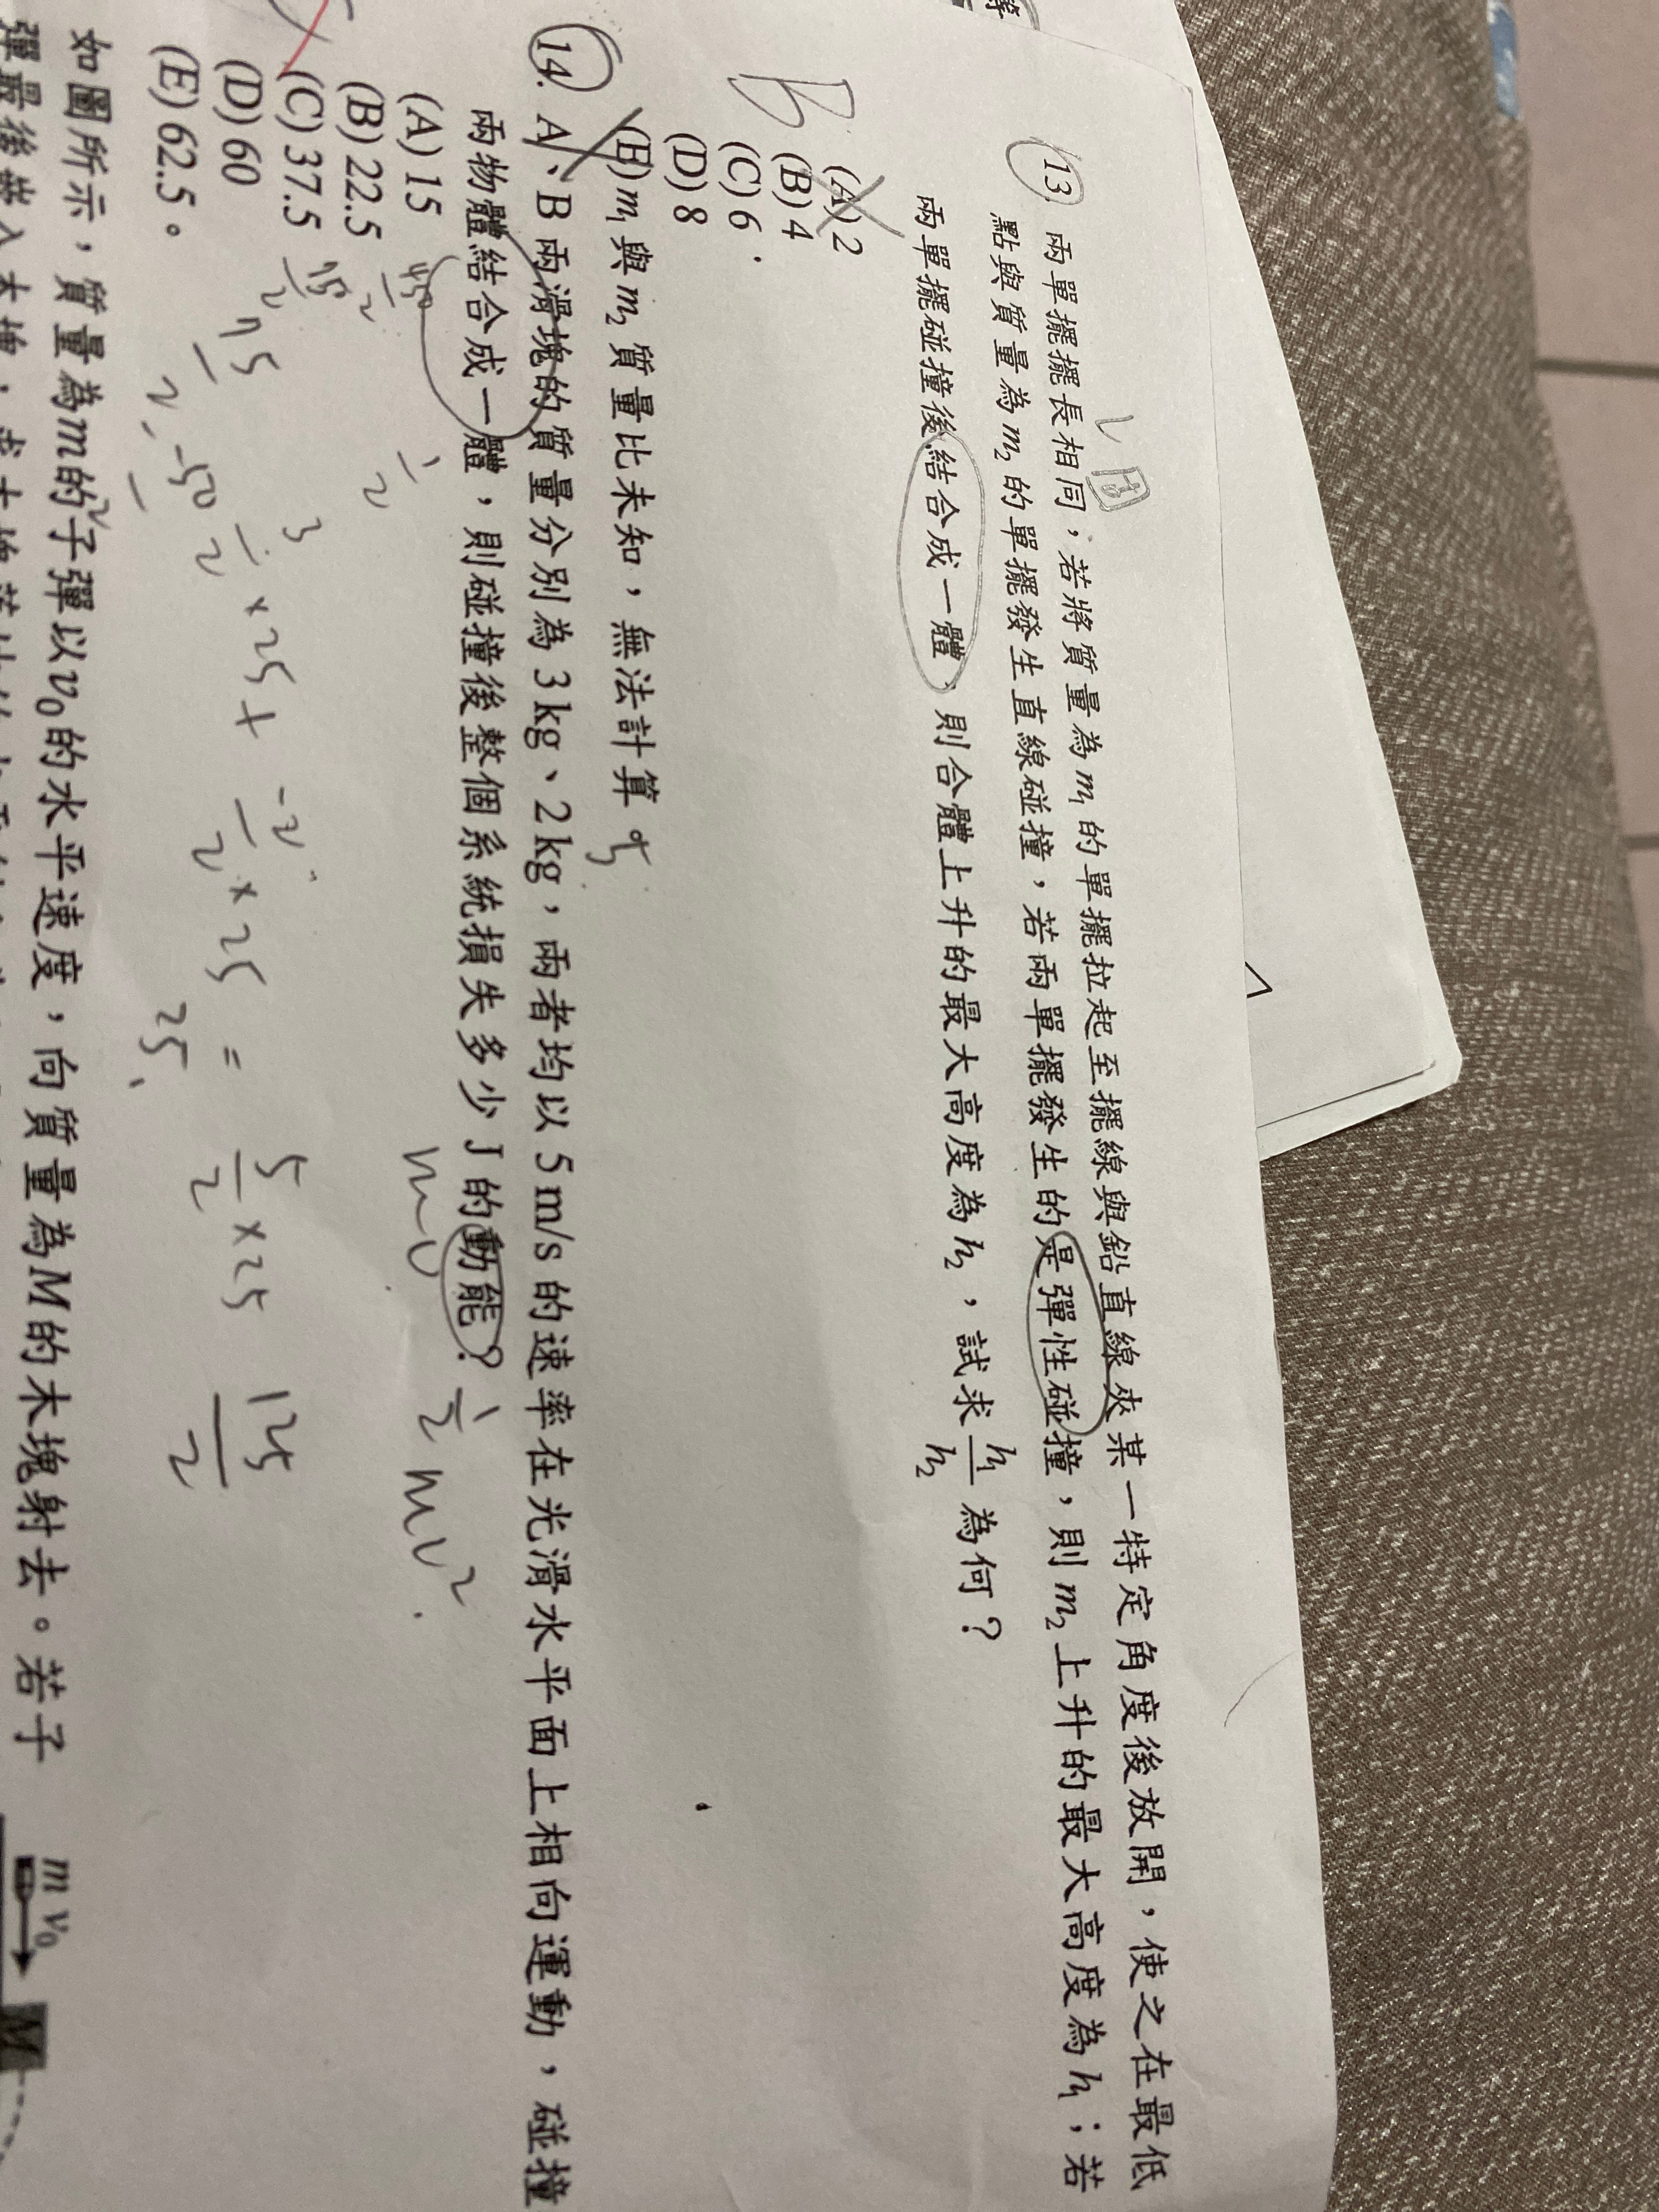 等
L 同
13. 兩單擺擺長相同，若將質量為 m₁ 的單擺拉起至擺線與鉛直線夾某一特定角度後放開，使之在最低
點與質量為 m₂ 的單擺發生直線碰撞，若兩單擺發生的是彈性碰撞，則 m₂ 上升的最大高度為 h₁；若
兩單擺碰撞後結合成一體，則合體上升的最大高度為 h₂，試求 h₁/h₂ 為何？
B
(A) 2
(B) 4
(C) 6
(D) 8
(E) m₁ 與 m₂ 質量比未知，無法計算。
14. A、B 兩滑塊的質量分別為 3 kg、2 kg，兩者均以 5 m/s 的速率在光滑水平面上相向運動，碰撞
兩物體結合成一體，則碰撞後整個系統損失多少 J 的動能？
mv
1/2 mv²
(A) 15
(B) 22.5
(C) 37.5
(D) 60
(E) 62.5。
1/2
75/2
3/2 × 25 + 2/2 × 25 = 5/2 × 25
125/2
25
如圖所示，質量為 m 的子彈以 v₀ 的水平速度，向質量為 M 的木塊射去。若子
m v₀
M
彈最後嵌入木塊，求木塊落地的水平